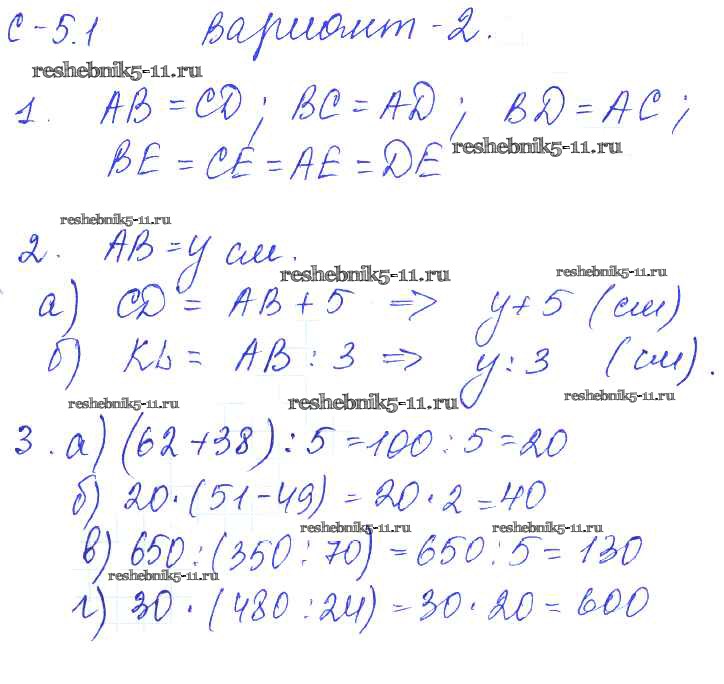 С-5.1 Вариант-2.
reshebnik5-11.ru
1. AB = CD; BC = AD; BD = AC;
BE = CE = AE = DE reshebnik5-11.ru
reshebnik5-11.ru
2. AB = y см.
reshebnik5-11.ru reshebnik5-11.ru
а) CD = AB + 5 => y + 5 (см)
б) KL = AB : 3 => y : 3 (см).
reshebnik5-11.ru reshebnik5-11.ru reshebnik5-11.ru
3. а) (62 + 38) : 5 = 100 : 5 = 20
б) 20 · (51 - 49) = 20 · 2 = 40
reshebnik5-11.ru reshebnik5-11.ru
в) 650 : (350 : 70) = 650 : 5 = 130
reshebnik5-11.ru
г) 30 · (480 : 24) = 30 · 20 = 600